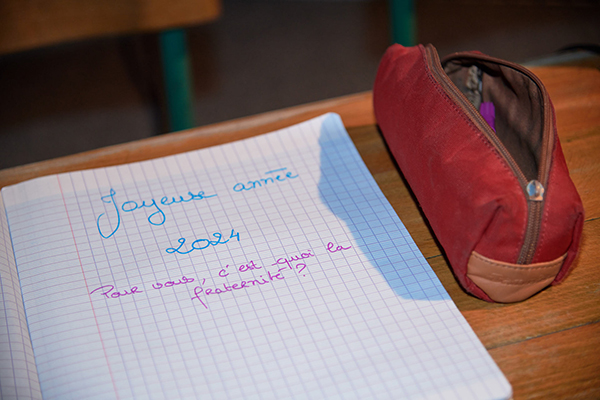 Joyeuse année
2024
Pour vous, c'est quoi la
fraternité ?